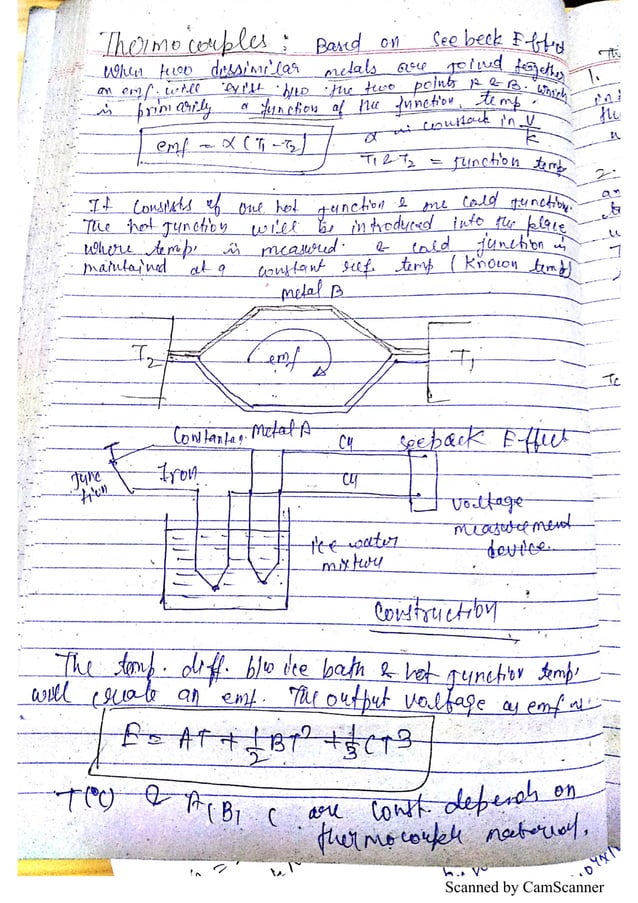 Thermocouples : Based on Seebeck Effect
When two dissimilar metals are joined together
an emf will exist b/w the two points A & B. which
is primarily a function of the junction temp.
emf = α (T1 - T2)
α is constant in V/K
T1 & T2 = junction temp
It consists of one hot junction & one cold junction.
The hot junction will be introduced into the place
where temp. is measured. & cold junction is
maintained at a constant ref. temp (Known temp)
Metal B
T2
emf
T1
Metal A
Constantan
Cu
Seeback Effect
Junction
Iron
Cu
voltage
measurement
device.
ice water
mixture
Construction
The temp. diff. b/w ice bath & hot junction temp.
will create an emf. The output voltage as emf is
E = AT + 1/2 BT² + 1/3 CT3
T(°C) & A, B, C are const. depends on
thermocouple material.
Scanned by CamScanner